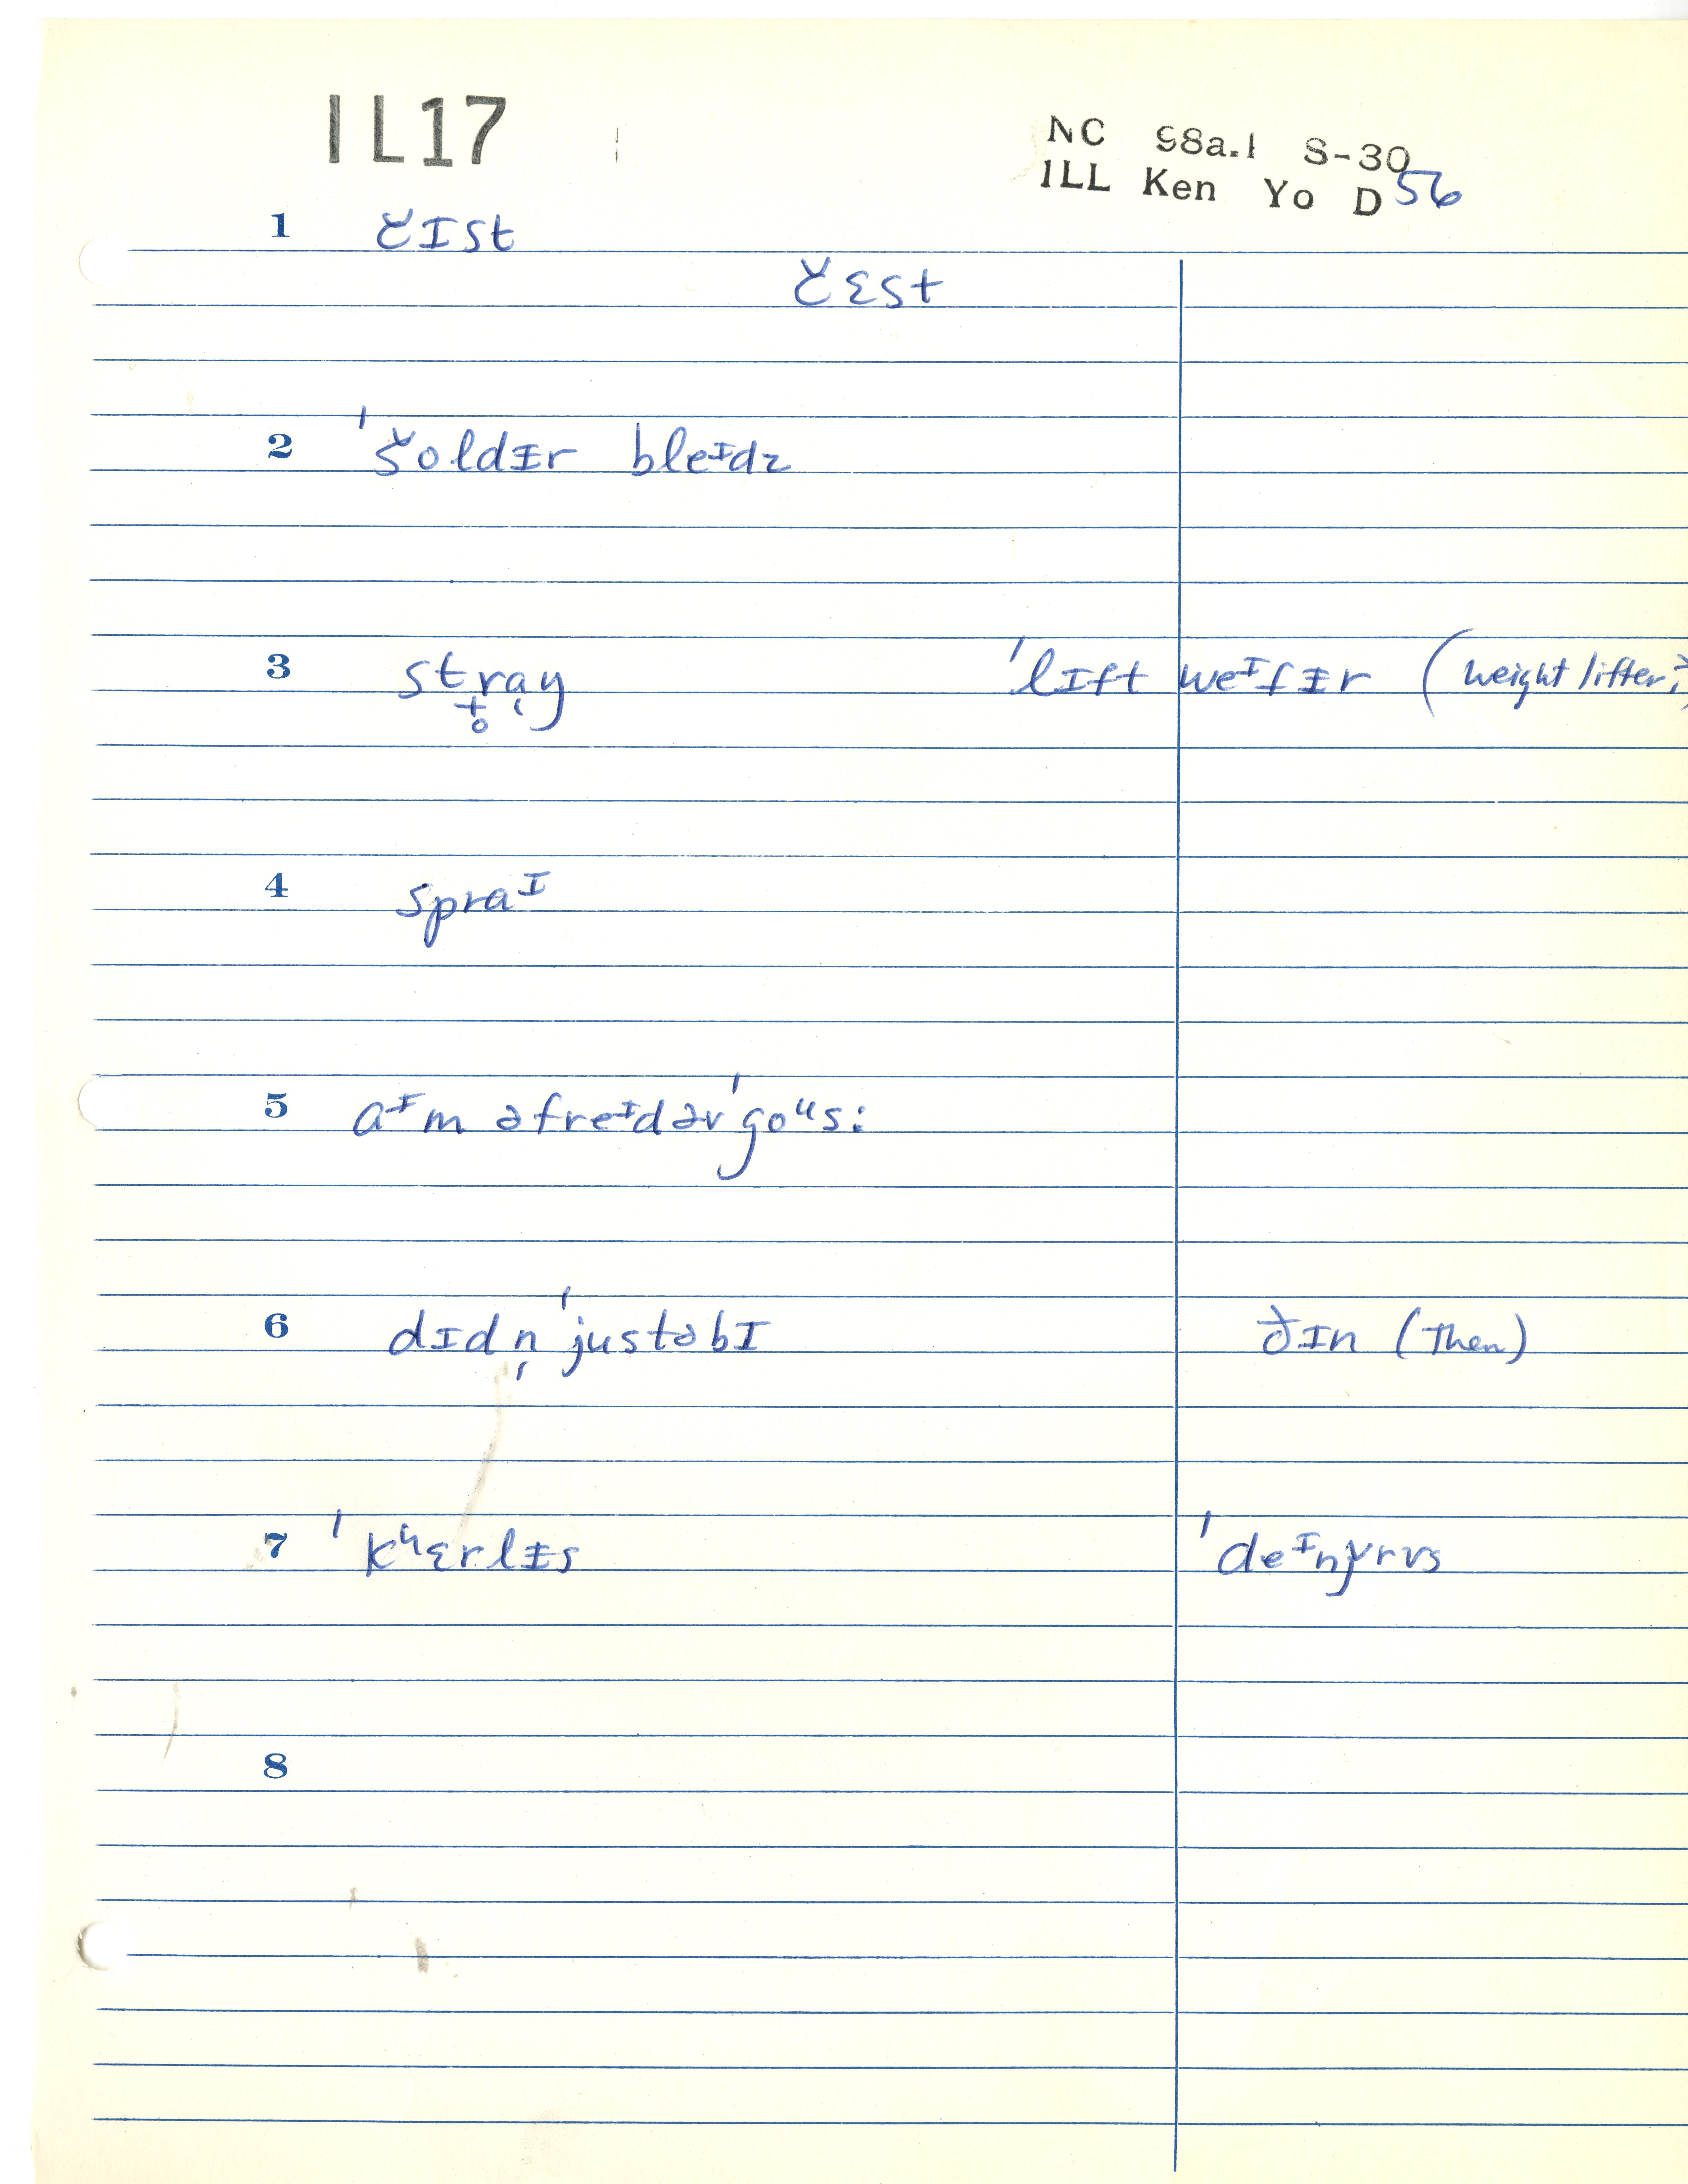 IL17
NC 98a.1 S-30
ILL Ken Yo D 56
1 čɪst
čɛst
2 ˈšoldɪr bleᶦdz
3 stray ˈlɪft weᶦfɪr (weight lifter?)
4 spraᶦ
5 aᶦm əfreᶦdəv ˈgoᵘs:
6 dɪdn̩ ˈjustəbɪ ðɪn (Then)
7 ˈkʰɛrlɪs ˈdeᶦnǰrʌs
8